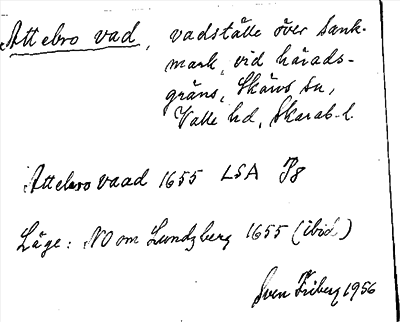 Attebro vad, vadställe över sank-
mark, vid härads-
gräns, Skärvs sn,
Valle hd, Skarab. l.
Attebro vaad 1655 LSA P8
Läge: NO om Lundzberg 1655 (ibid)
Sven Friberg 1956